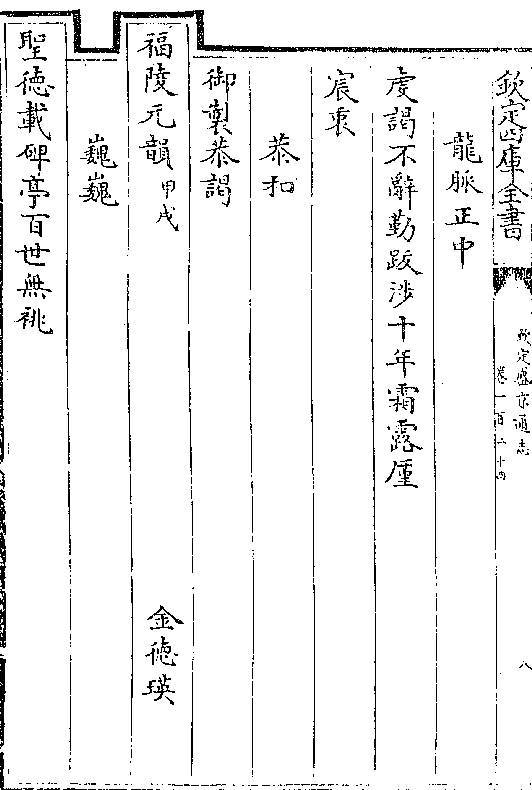 欽定四庫全書
欽定盛京通志
卷一百二十四
八
龍脈正中
虔謁不辭勤跋涉十年霜露廑
宸衷
恭和
御製恭謁
福陵元韻甲戌
金德瑛
巍巍
聖德載碑亭百世無祧